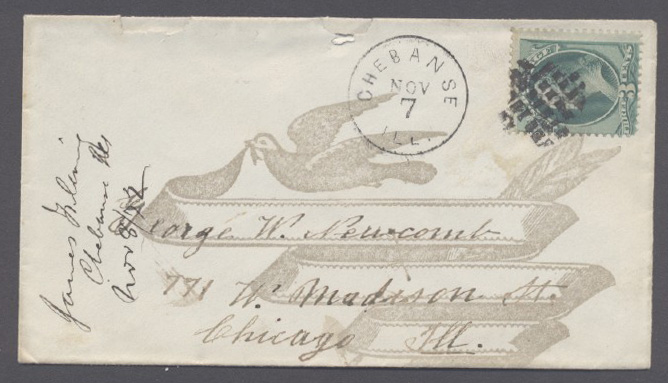 CHEBANSE
NOV
7
ILL.
3 CENTS
George W. Newcomb
771 W. Madison St.
Chicago Ill.
James
Chebanse Ills
Nov 8/82